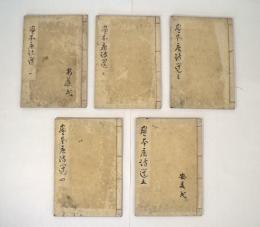 畫本唐詩選 一
畫本唐詩選 二
畫本唐詩選 三
畫本唐詩選 四
畫本唐詩選 五